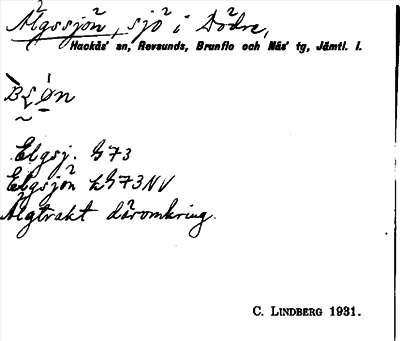 Älgssjön, sjö i Dödre,
Hackås' sn, Revsunds, Brunflo och Näs' tg, Jämtl. l.
Elgsj. G73
Elgsjön kG73NV
Älgtrakt däromkring.
C. LINDBERG 1931.